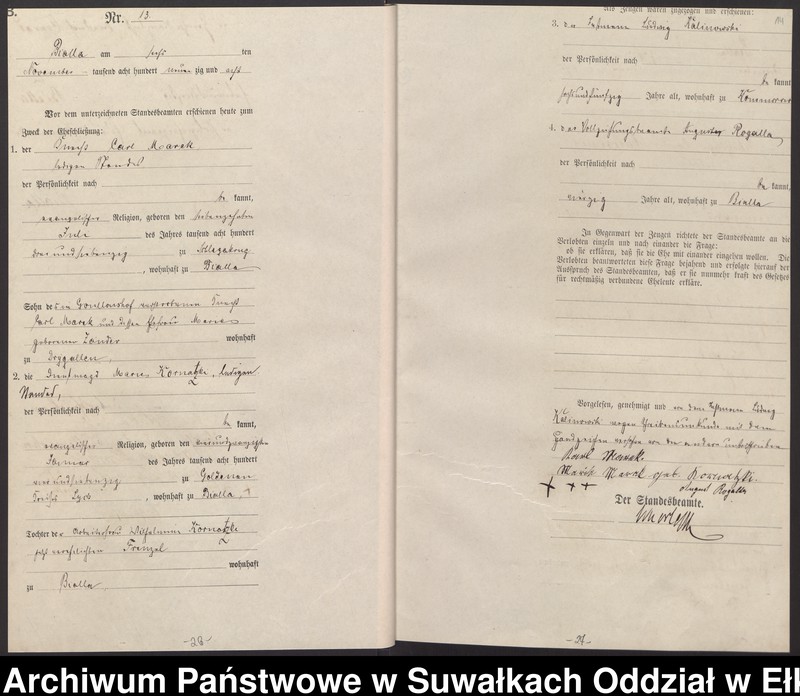 B.
Nr. 13.
Bialla am sechs ten
November tausend acht hundert neunzig und acht
Vor dem unterzeichneten Standesbeamten erschienen heute zum
Zweck der Eheschließung:
1. der Knecht Carl Marek
ledigen Standes
der Persönlichkeit nach
be kannt,
evangelischer Religion, geboren den siebenzehnten
Juli des Jahres tausend acht hundert
drei und siebenzig zu
, wohnhaft zu Bialla
Sohn des in verstorbenen Knecht
Carl Marek und dessen Ehefrau Marie
geborenen Zander wohnhaft
zu Drygallen
2. die Dienstmagd Marie Kornatzki, ledigen
Standes,
der Persönlichkeit nach
be kannt,
evangelischer Religion, geboren den vierundzwanzigsten
Januar des Jahres tausend acht hundert
vier und siebenzig zu
Kreises Lyck, wohnhaft zu Bialla,
Tochter der Arbeiterfrau Wilhelmine Kornatzki
jetzt verehelichten Frenzel
wohnhaft
zu Bialla
-28-
Als Zeugen waren zugezogen und erschienen:
3. der Losmann Ludwig Kalinowski
der Persönlichkeit nach
be kannt,
sechsundfünfzig Jahre alt, wohnhaft zu
4. der Vollziehungsbeamte August Rogalla
der Persönlichkeit nach
be kannt,
vierzig Jahre alt, wohnhaft zu Bialla
In Gegenwart der Zeugen richtete der Standesbeamte an die
Verlobten einzeln und nach einander die Frage:
ob sie erklären, daß sie die Ehe mit einander eingehen wollen. Die
Verlobten beantworteten diese Frage bejahend und erfolgte hierauf der
Ausspruch des Standesbeamten, daß er sie nunmehr kraft des Gesetzes
für rechtmäßig verbundene Eheleute erkläre.
Vorgelesen, genehmigt und von dem Losmann Ludwig
Kalinowski wegen Schreibensunkunde mit dem
Handzeichen versehen von den andern unterschrieben
Karl Marek
Marie Marek geb. Kornatzki.
+ ++
August Rogalla
Der Standesbeamte.
-27-
Archiwum Państwowe w Suwałkach Oddział w Eł